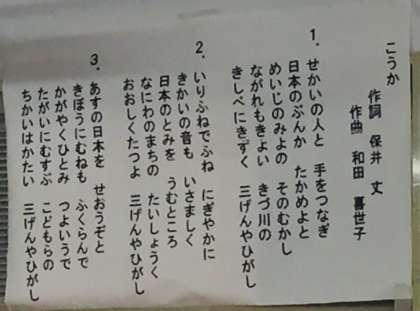 こうか
作詞 保井 丈
作曲 和田 喜世子
1. せかいの人と 手をつなぎ
日本のぶんか たかめよと
めいじのみよの そのむかし
ながれもきよい きづ川の
きしべにきずく 三げんやひがし
2. いりふねでふね にぎやかに
きかいの音も いさましく
日本のとみを うむところ
なにわのまちの たいしょうく
おおしくたつよ 三げんやひがし
3. あすの日本を せおうぞと
きぼうにむねも ふくらんで
かがやくひとみ つよいうで
たがいにむすぶ こどもらの
ちかいはかたい 三げんやひがし